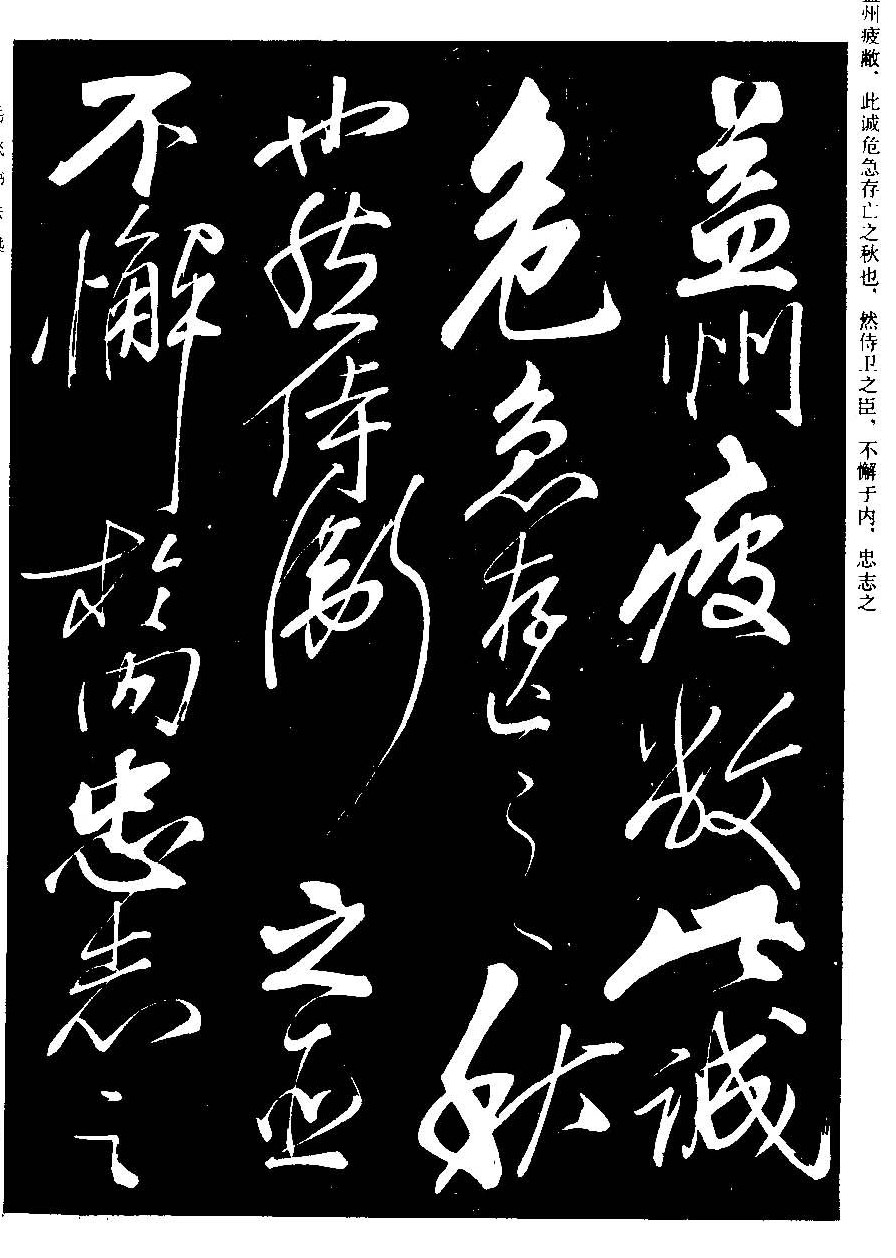 益州疲敝此诚危急存亡之秋也，然侍卫之臣，不懈于内，忠志之
益州疲敝此誠
危急存亡之秋
也然侍衛之臣
不懈於内忠志之